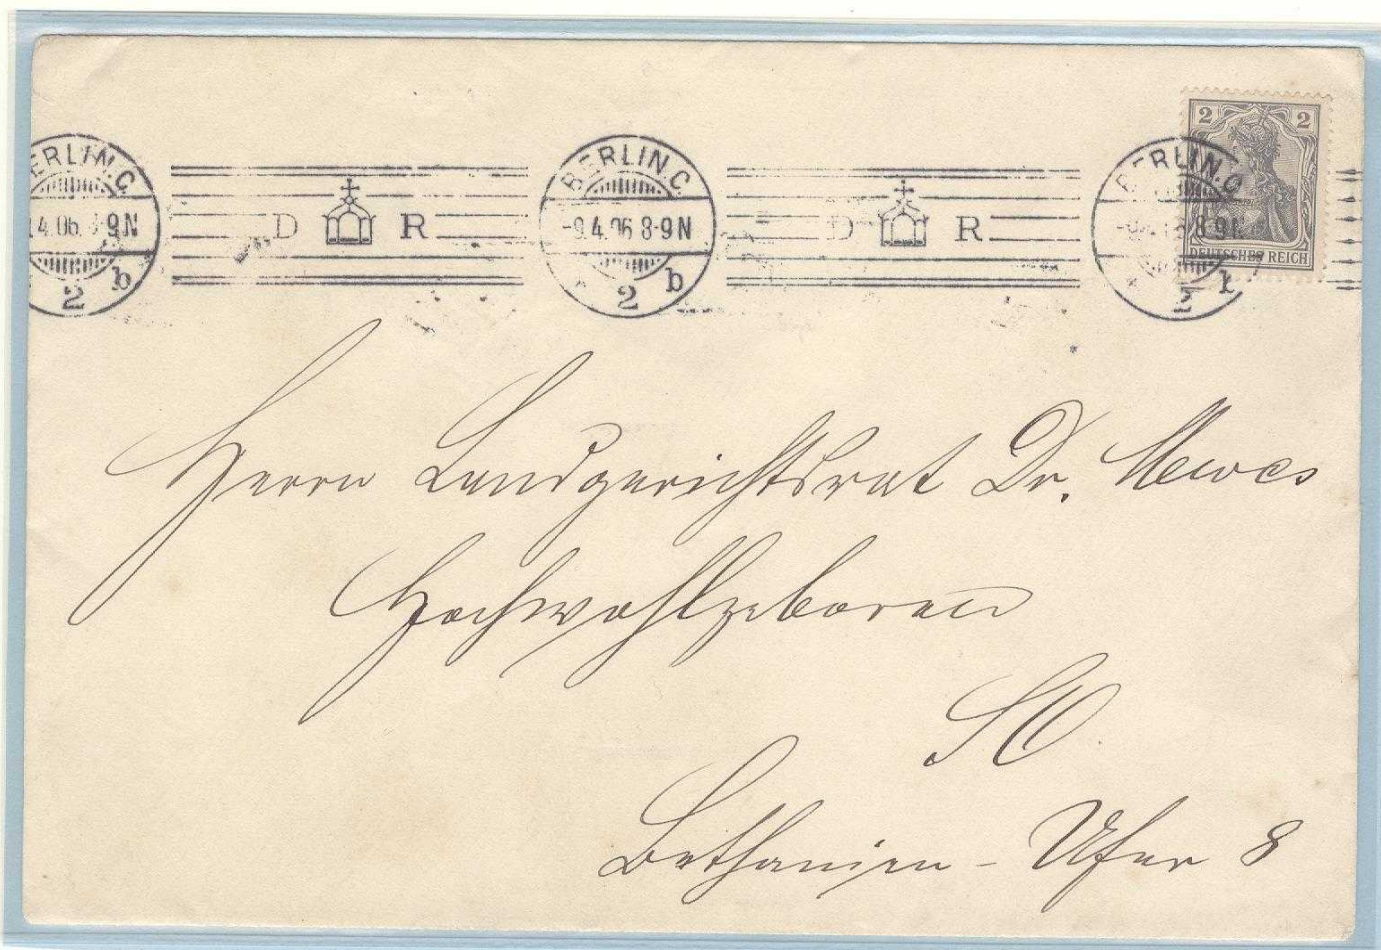 BERLIN.C. 9.4.06 8-9N 2 b
D R
BERLIN.C. -9.4.06 8-9N 2 b
D R
BERLIN.C. 8-9N 2 b
2 2
DEUTSCHES REICH
Herrn Landgerichtsrat Dr. Mewes
Hochwohlgeboren
SO
Bethanien-Ufer 8